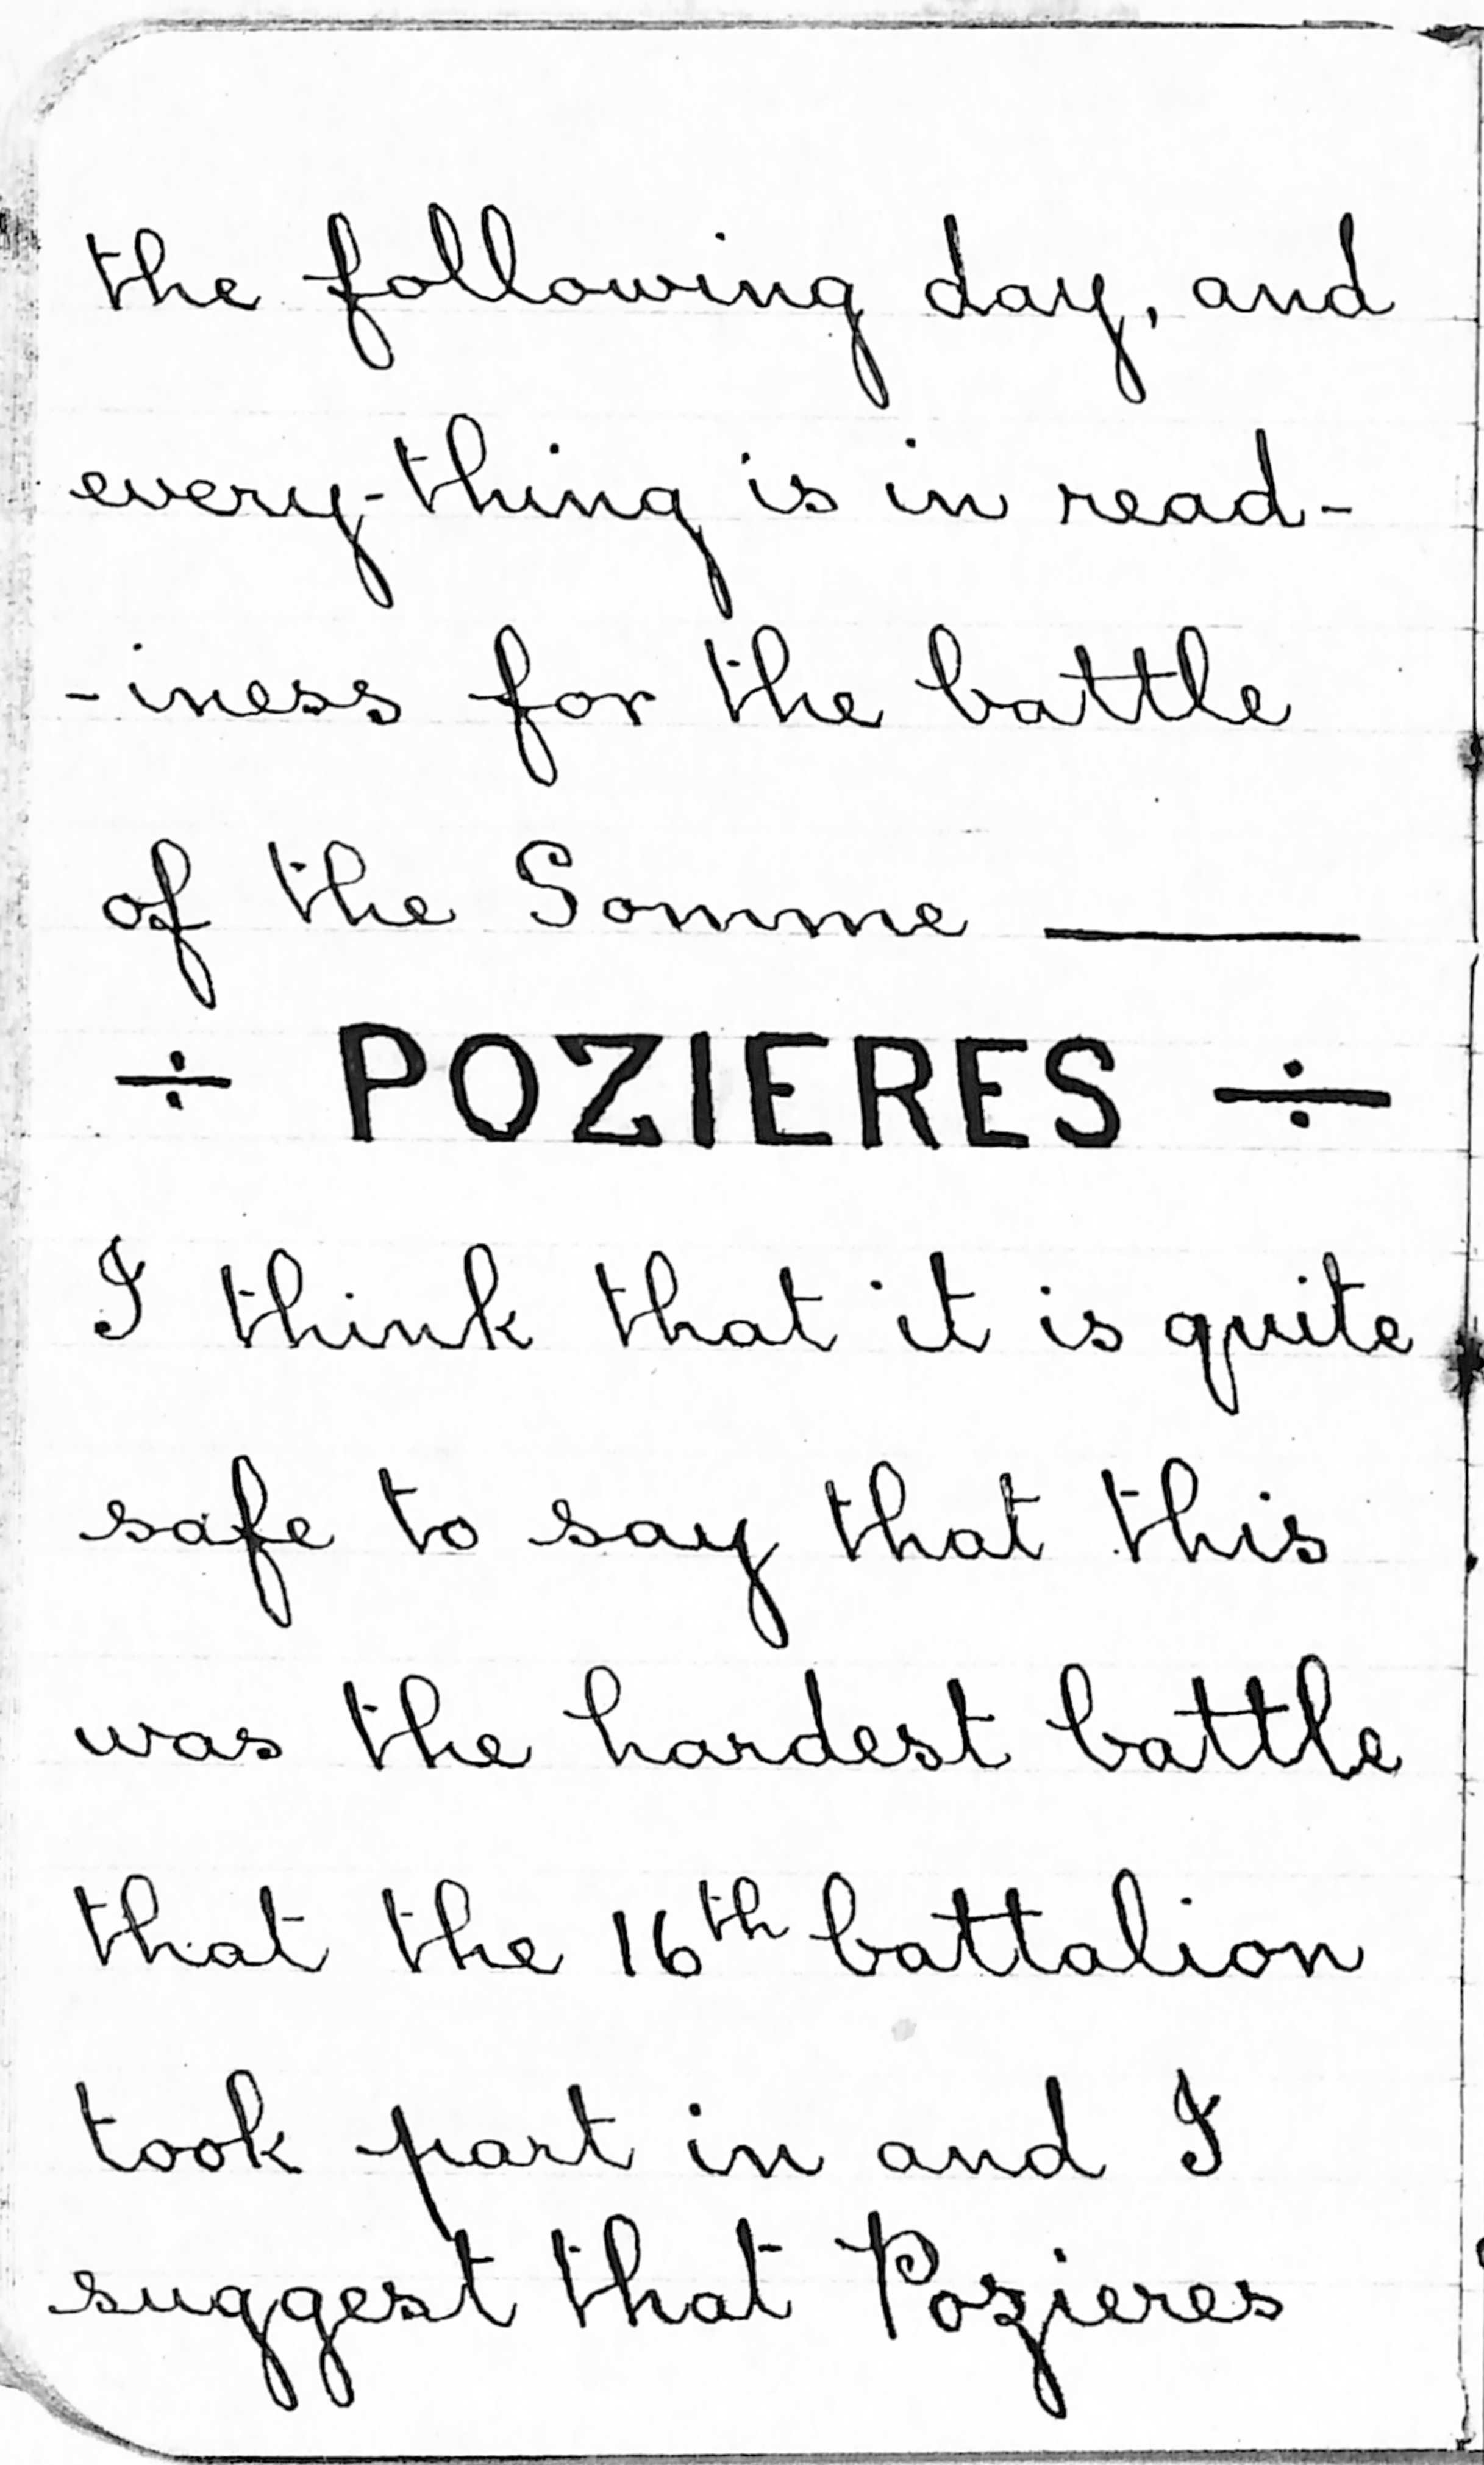 the following day, and
every-thing is in read-
-iness for the battle
of the Somme ———
÷ POZIERES ÷
I think that it is quite
safe to say that this
was the hardest battle
that the 16th battalion
took part in and I
suggest that Pozieres